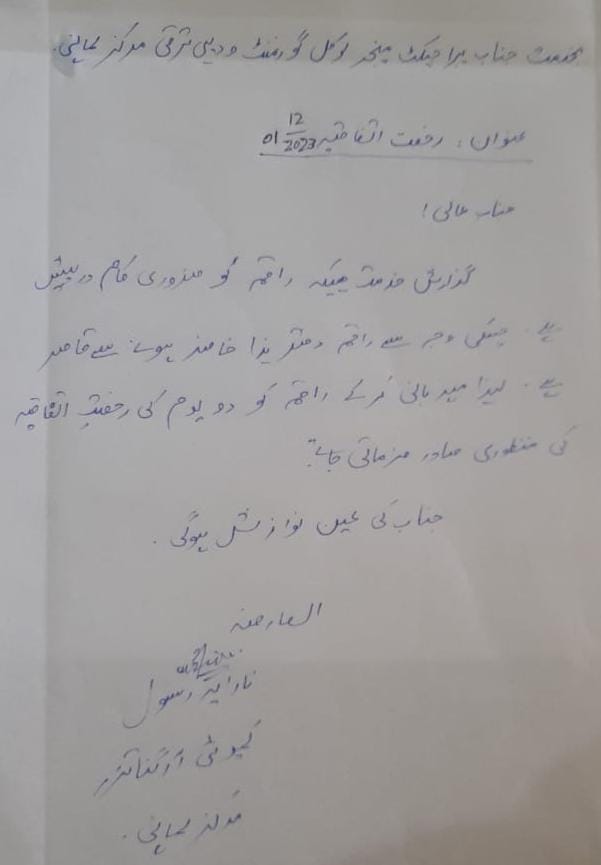 بخدمت جناب پراجیکٹ مینجر لوکل گورنمنٹ و دیہی ترقی مرکز سماہنی۔
عنوان: رخصت اتفاقیہ 01/12/2023
جناب عالی!
گذارش خدمت ہیکہ راقمہ کو ضروری کام درپیش
ہے۔ جسکی وجہ سے راقمہ دفتر ہذا حاضر ہونے سے قاصر
ہے۔ لہذا مہربانی کر کے راقمہ کو دو یوم کی رخصتِ اتفاقیہ
کی منظوری صادر فرمائی جائے۔
جناب کی عین نوازش ہوگی۔
العارضہ
رسول
کمیونٹی آرگنائزر
مرکز سماہنی۔